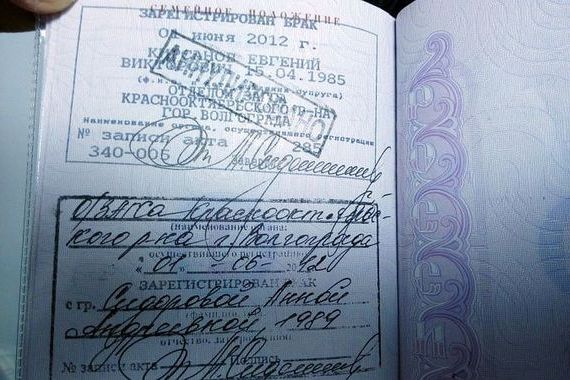 СЕМЕЙНОЕ ПОЛОЖЕНИЕ
ЗАРЕГИСТРИРОВАН БРАК
01 июня 2012 г.
ЕВГЕНИЙ
15.04.1985
супруга)
ОТДЕЛОМ
КРАСНООКТЯБРЬСКОГО Р-НА
ГОР. ВОЛГОГРАДА
Наименование органа, осуществившего регистрацию
№ записи акта 285
340-006
ОЗАГСа Краснооктябрьс-
кого р-на г. Волгограда
(наименование органа,
осуществившего регистрацию)
« 01 » - 06 - 2012
ЗАРЕГИСТРИРОВАН БРАК
с гр. Сидоровой Анной
Андреевной, 1989
отчество, дата рождения)
№ записи акта Подпись